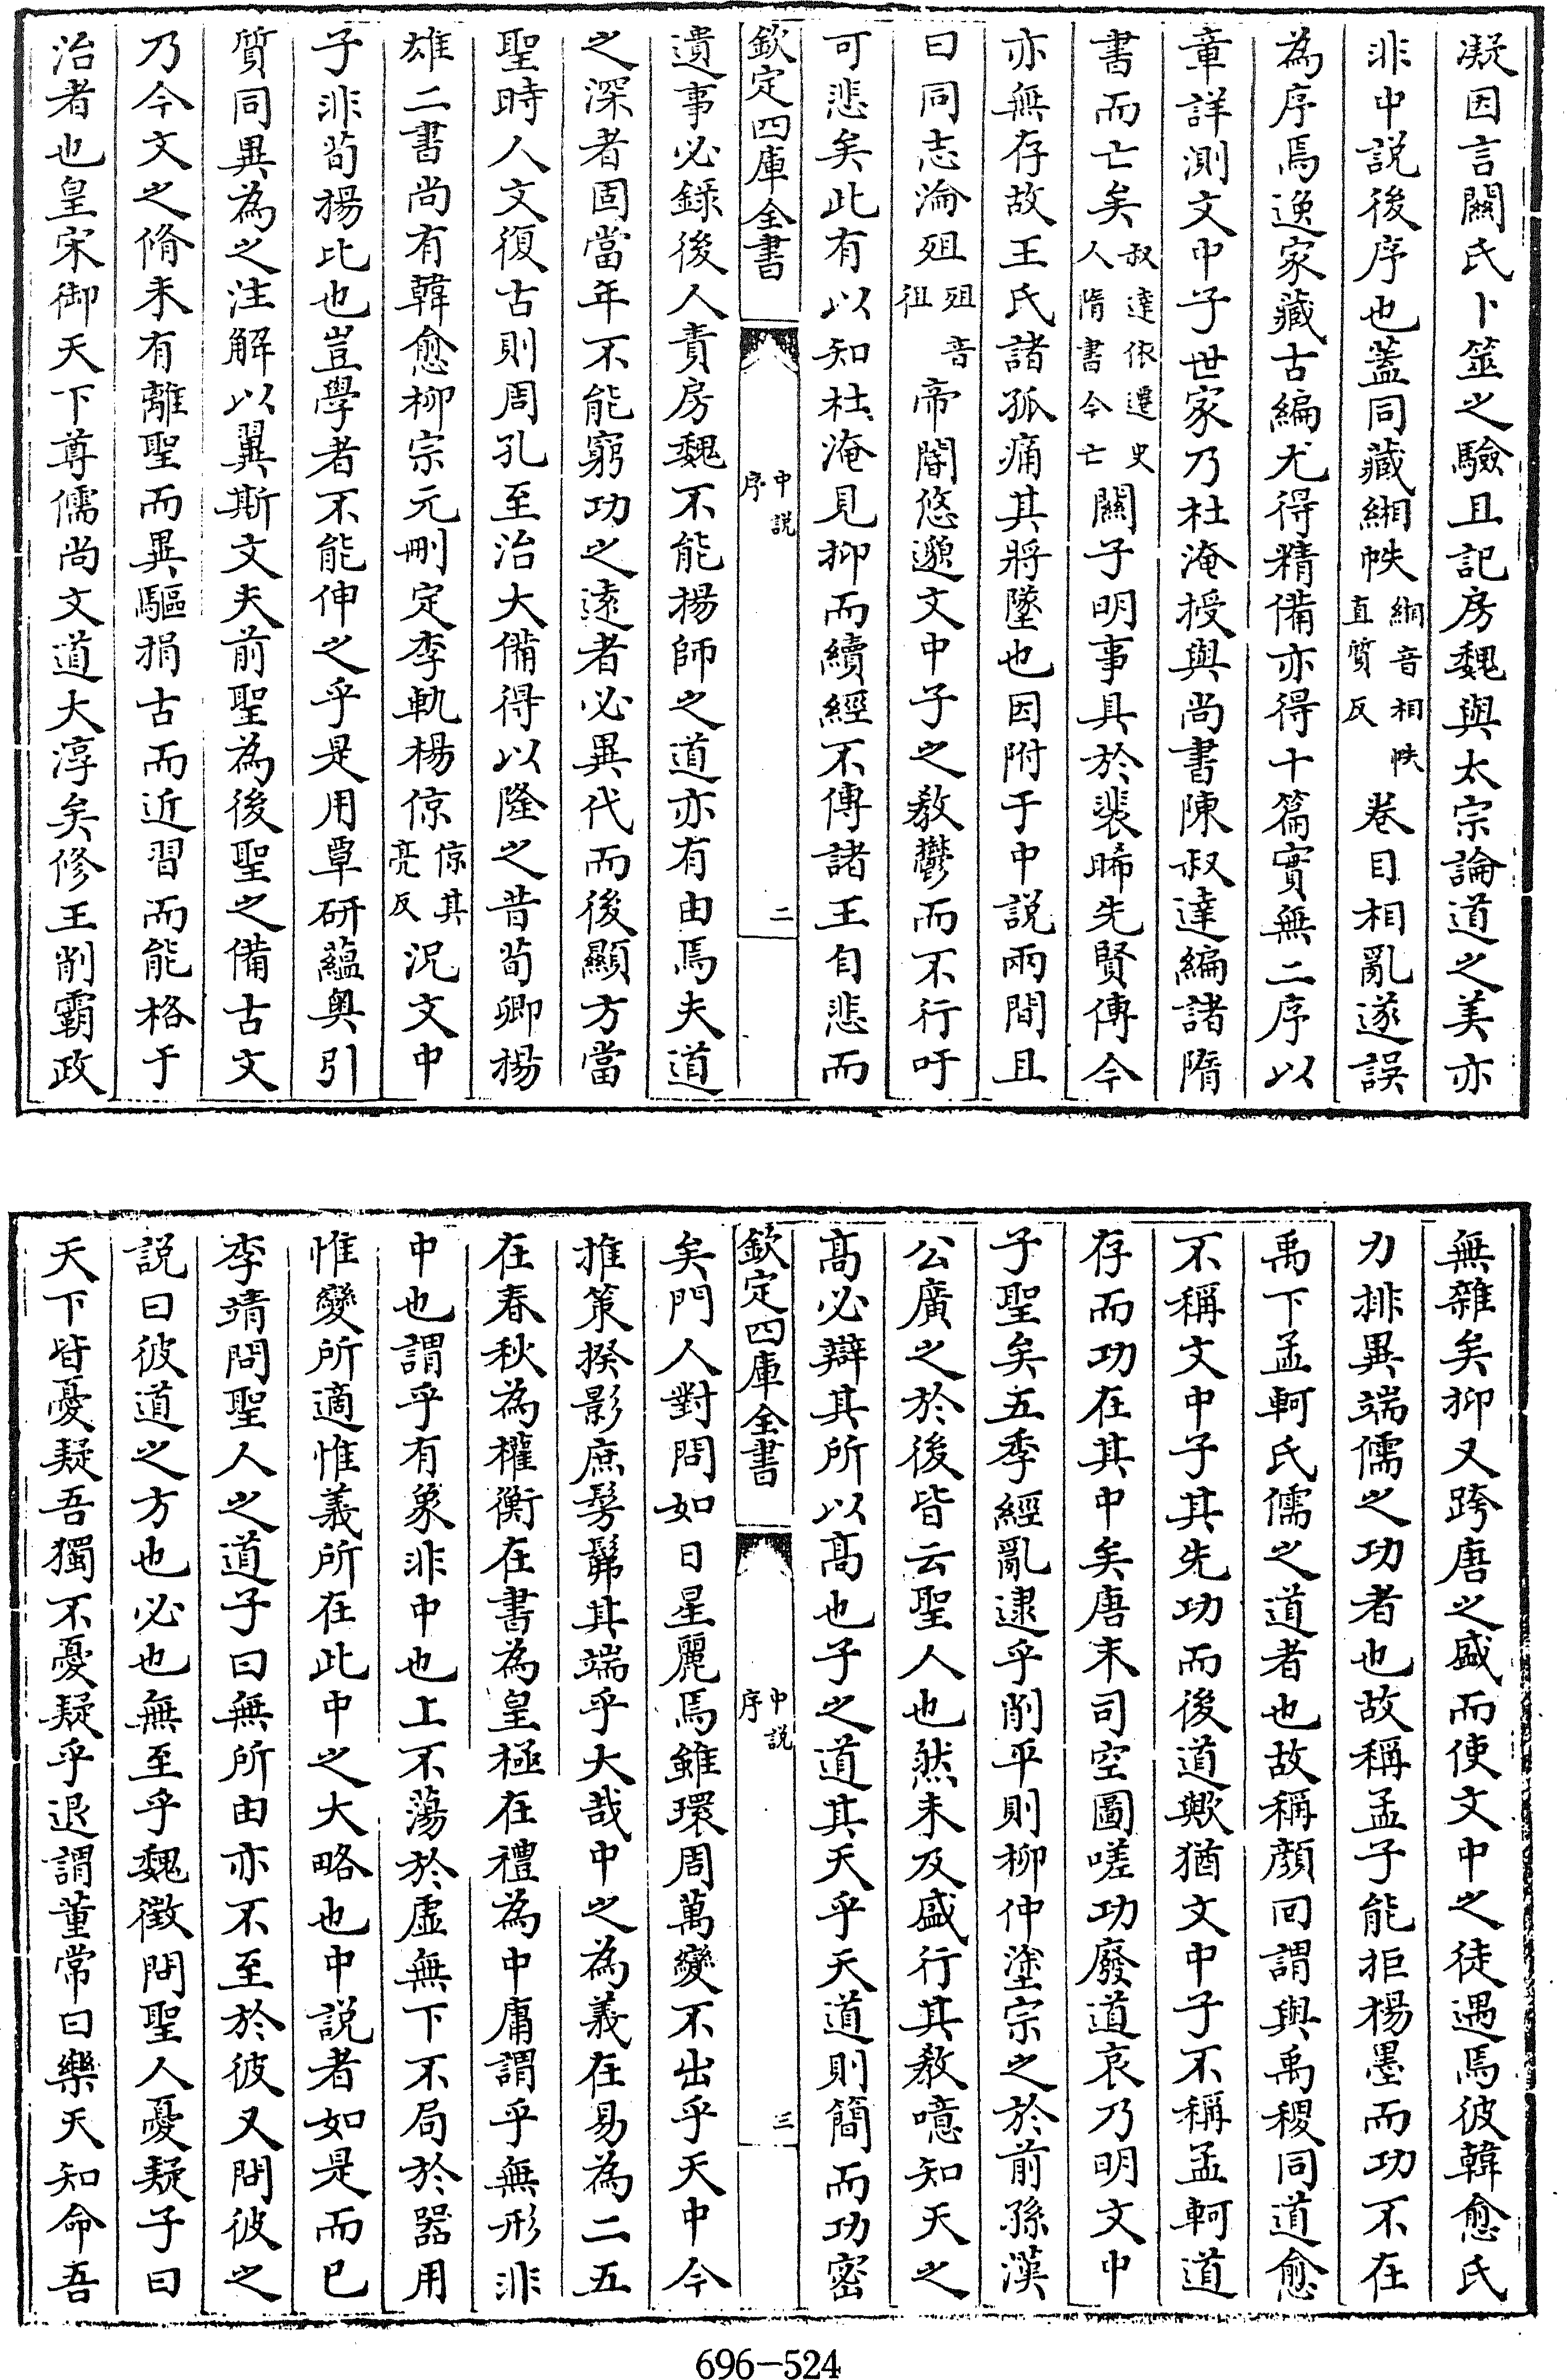 凝因言闗氏卜筮之驗且記房魏與太宗論道之美亦
非中説後序也葢同藏緗帙緗音相帙直質反卷目相亂遂誤
為序焉逸家藏古編尤得精備亦得十篇實無二序以
章詳測文中子世家乃杜淹授與尚書陳叔達編諸隋
書而亡矣叔達依遷史人隋書今亡關子明事具於裴晞先賢傳今
亦無存故王氏諸孤痛其將墜也因附于中説兩間且
曰同志淪殂殂音徂帝閽悠邈文中子之教鬱而不行吁
可悲矣此有以知杜淹見抑而續經不傳諸王自悲而
欽定四庫全書 中説序 二
遺事必録後人責房魏不能揚師之道亦有由焉夫道
之深者固當年不能窮功之遠者必異代而後顯方當
聖時人文復古則周孔至治大備得以隆之昔荀卿揚
雄二書尚有韓愈柳宗元刪定李軌楊倞倞其亮反況文中
子非荀揚比也豈學者不能伸之乎是用覃研藴奥引
質同異為之注解以翼斯文夫前聖為後聖之備古文
乃今文之脩未有離聖而異驅捐古而近習而能格于
治者也皇宋御天下尊儒尚文道大淳矣修王削霸政
無雜矣抑又跨唐之盛而使文中之徒遇焉彼韓愈氏
力排異端儒之功者也故稱孟子能拒楊墨而功不在
禹下孟軻氏儒之道者也故稱顔回謂與禹稷同道愈
不稱文中子其先功而後道歟猶文中子不稱孟軻道
存而功在其中矣唐末司空圖嗟功廢道哀乃明文中
子聖矣五季經亂逮乎削平則柳仲塗宗之於前孫漢
公廣之於後皆云聖人也然未及盛行其教噫知天之
髙必辯其所以髙也子之道其天乎天道則簡而功密
欽定四庫全書 中説序 三
矣門人對問如日星麗焉雖環周萬變不出乎天中今
推策揆影庶髣髴其端乎大哉中之為義在易為二五
在春秋為權衡在書為皇極在禮為中庸謂乎無形非
中也謂乎有象非中也上不蕩於虚無下不局於器用
惟變所適惟義所在此中之大略也中説者如是而已
李靖問聖人之道子曰無所由亦不至於彼又問彼之
説曰彼道之方也必也無至乎魏徵問聖人憂疑子曰
天下皆憂疑吾獨不憂疑乎退謂董常曰樂天知命吾
696-524